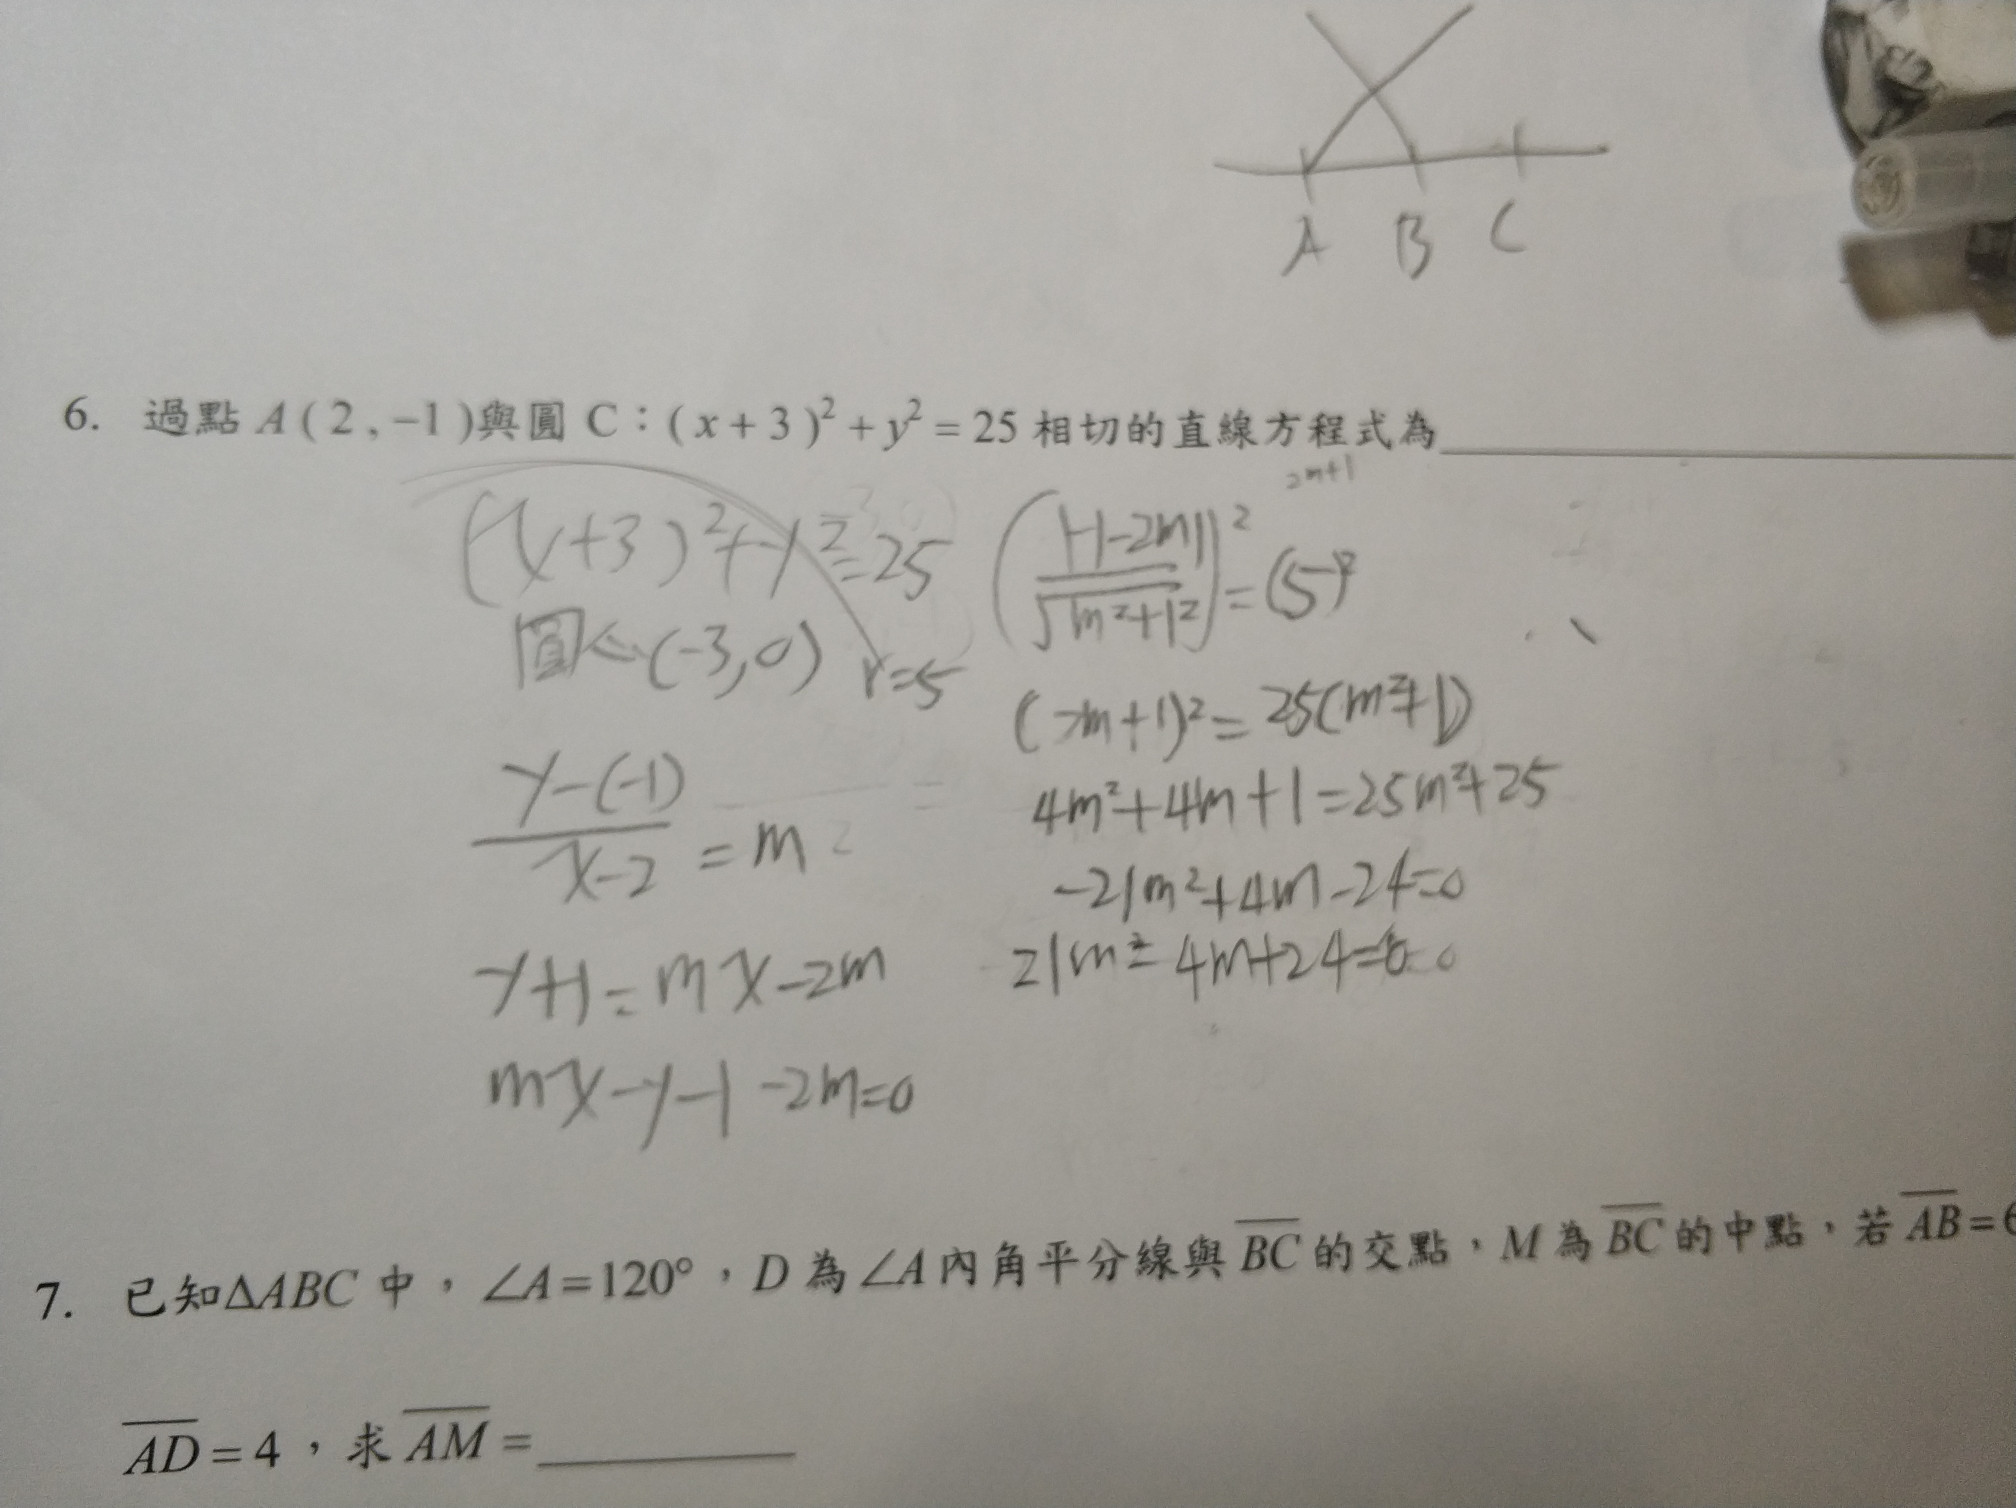 A B C
6. 過點 A ( 2 , −1 )與圓 C：( x + 3 )² + y² = 25 相切的直線方程式為
(x+3)²+y²=25
圓心(-3,0) r=5
y-(-1)
x-2 = m
y+1=mx-2m
mx-y-1-2m=0
2m+1
(|-1-2m|)²
√m²+1² =(5)²
(2m+1)²=25(m²+1)
4m²+4m+1=25m²+25
-21m²+4m-24=0
21m²-4m+24=0
7. 已知ΔABC 中，∠A=120°，D 為∠A內角平分線與BC的交點，M 為BC的中點，若AB=6
AD=4，求AM=